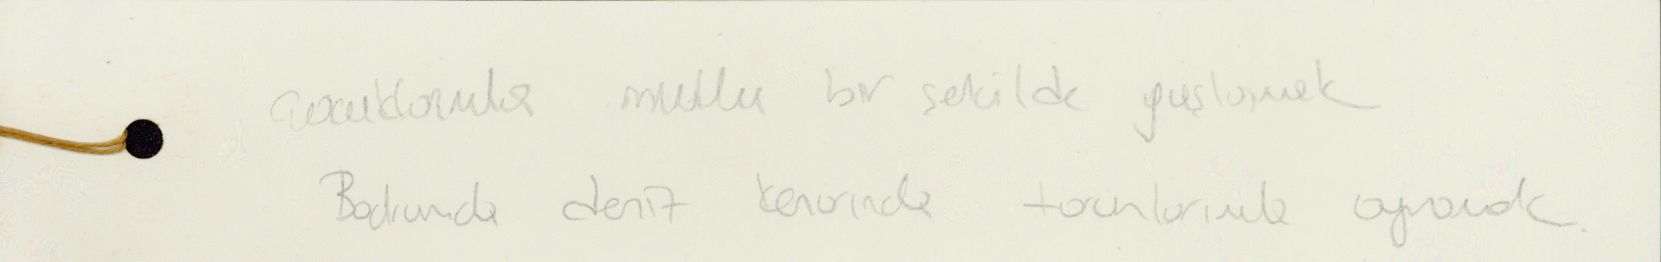 çocuklarımla mutlu bir şekilde yaşlanmak
Bodrumda deniz kenarında torunlarımla oynamak.